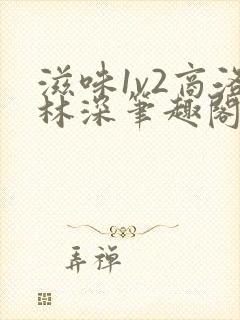 滋味1v2高洛
林深笔趣阁
弄禅